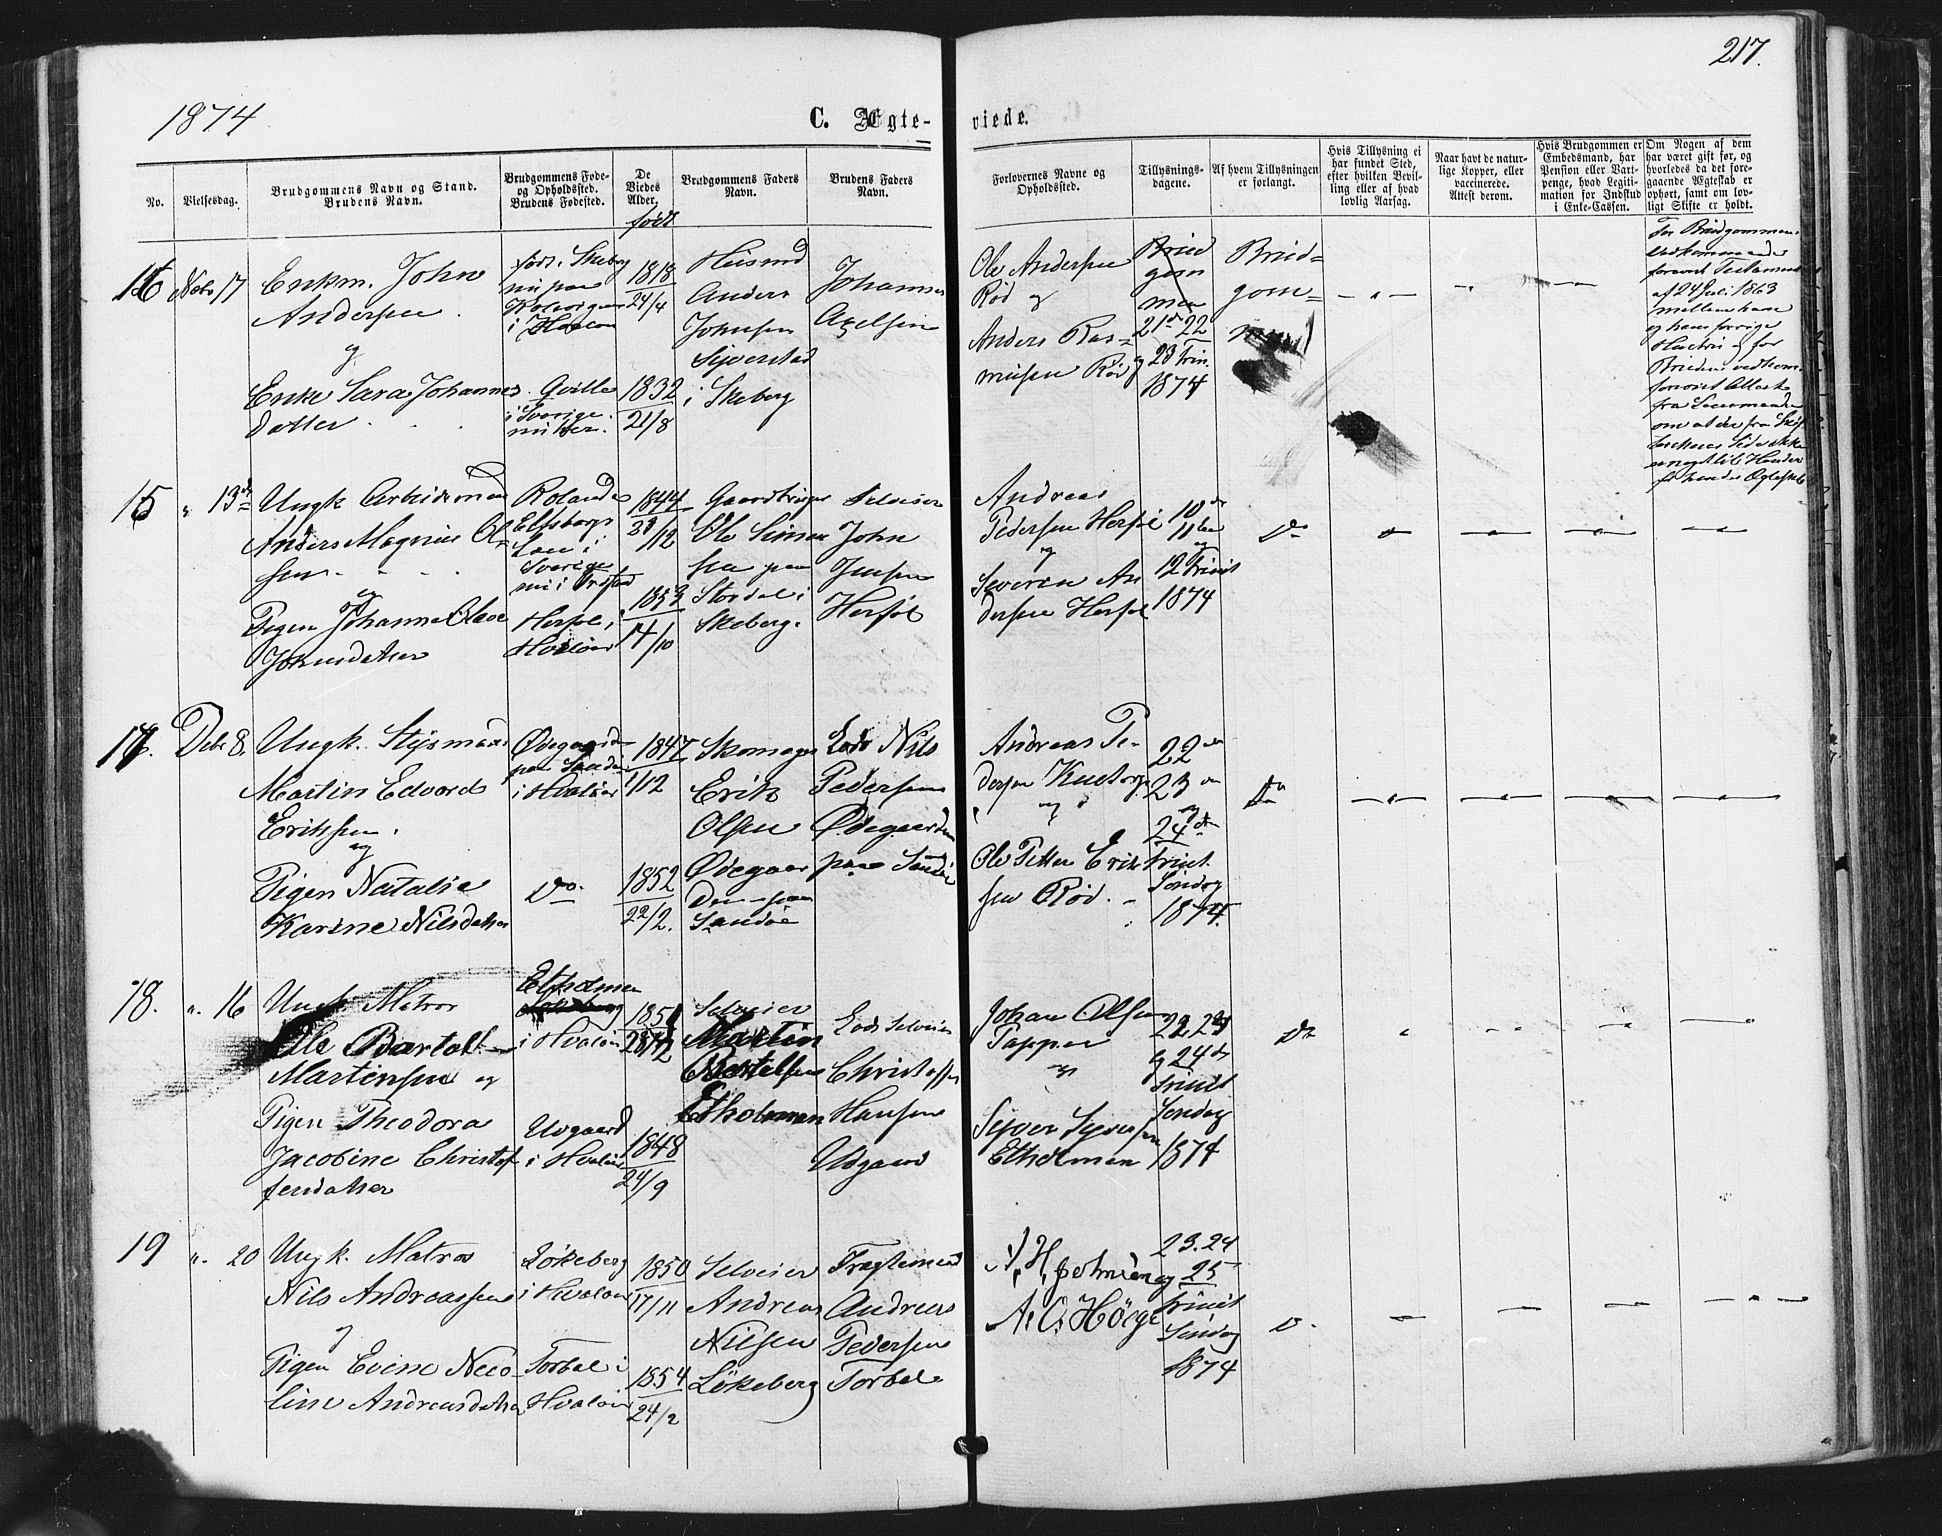 217.
1874
C. Ægte-
viede.
No.
Vielsesdag.
Brudgommens Navn og Stand.
Brudens Navn.
Brudgommens Føde-
og Opholdssted.
Brudens Fødested.
De
Viedes
Alder.
født
Brudgommens Faders
Navn.
Brudens Faders
Navn.
Forlovernes Navne og
Opholdssted.
Tillysnings-
dagene.
Af hvem Tillysningen
er forlangt.
Hvis Tillysning ei
har fundet Sted,
efter hvilken Bevil-
ling eller af hvad
lovlig Aarsag.
Naar havt de natur-
lige Kopper, eller
vaccinerede.
Attest derom.
Hvis Brudgommen er
Embedsmand, har
Pension eller Vart-
penge, hvad Legiti-
mation for Indskud
i Enke-Cassen.
Om Nogen af dem
har været gift før, og
hvorledes da det fore-
gaaende Ægteskab er
ophørt, samt om lov-
ligt Skifte er holdt.
16
Novbr 17
Enkm. John
Andersen
og
Enke Sara Johannes
datter
født i Skeberg
nu paa
i Hvaløer
Qville
i Sverige
1818
24/4
1832
21/8
Husmd
Anders
Johnsen
Sijverstad
i Skeberg
Johannes
Axelsen
Ole Andersen
Rød og
Anders Ras-
musen Rød
Brud
gom
men
21de 22
og 23 Trin.
1874
Brud-
gom-
men
For Brudgommens
Vedkommende
foreviist Testament
af 24 Juli 1863
mellem ham
og hans forrige
Hustru og for
Bruden vedkom.
foreviist Attest
fra
15
" 13de
Ungk Arbeidsmand
Anders Magnus Ol-
sen
og
Pigen Johanne Olave
Johnsdatter
Rolanda
Elfsborgs
Len i
Sverige
nu i
Herføl i
Hvaløer
1844
23/12
1853
14/10
Gaardbruger
Ole Simen
sen paa
Stordal i
Skeberg.
Selveier
John
Jensen
Herføl
Andreas
Pedersen Herføl
og
Severin An
dersen Herføl
10de
11te
og
12 Trinit
1874
Do
17.
Debr 8.
Ungk. Styrmand
Martin Edvard
Eriksen.
og
Pigen Natalia
Karine Nilsdatter
Ødegaarden
paa Sandø
i Hvaløer
Do.
1847
1/12
1852
22/2.
Skomager
Erik
Olsen
Ødegaar
den paa
Sandøe
Lods Nils
Pedersen
Ødegaarden
paa Sandø
Andreas Pe-
dersen
og
Ole Petter Erik
sen Rød.
22de
23de
og
24de
Trinit.
Søndag
1874.
Do
18.
". 16
Ungk. Matros
Ole Bartolt
Martinsen og
Pigen Theodora
Jacobine Christof
fersdatter
Etholmen
i Hvaløer
Urgaard
i Hvaløer
1848
24/9
Selveier
Martin
Bertelsen
Etholmen
Lods Selveier
Christoffer
Hansen
Urgaard
Johan Olsen
Papper
og
Syver Syversen
Etholmen
22 23
og 24de
Trinit
Søndag
1874
Do
19
". 20
Ungk. Matros
Nils Andreassen
og
Pigen Evine Nico-
line Andreasdatter
Løkeberg
i Hvaløer
Torbal i
Hvaløer
1850
17/11
1854
24/2
Selveier
Andreas
Nilsen
Løkeberg
Fragtemand
Andreas
Pedersen
Torbal
A. C. Höege
23. 24
og 25
Trinit
Søndag
1874
Do.